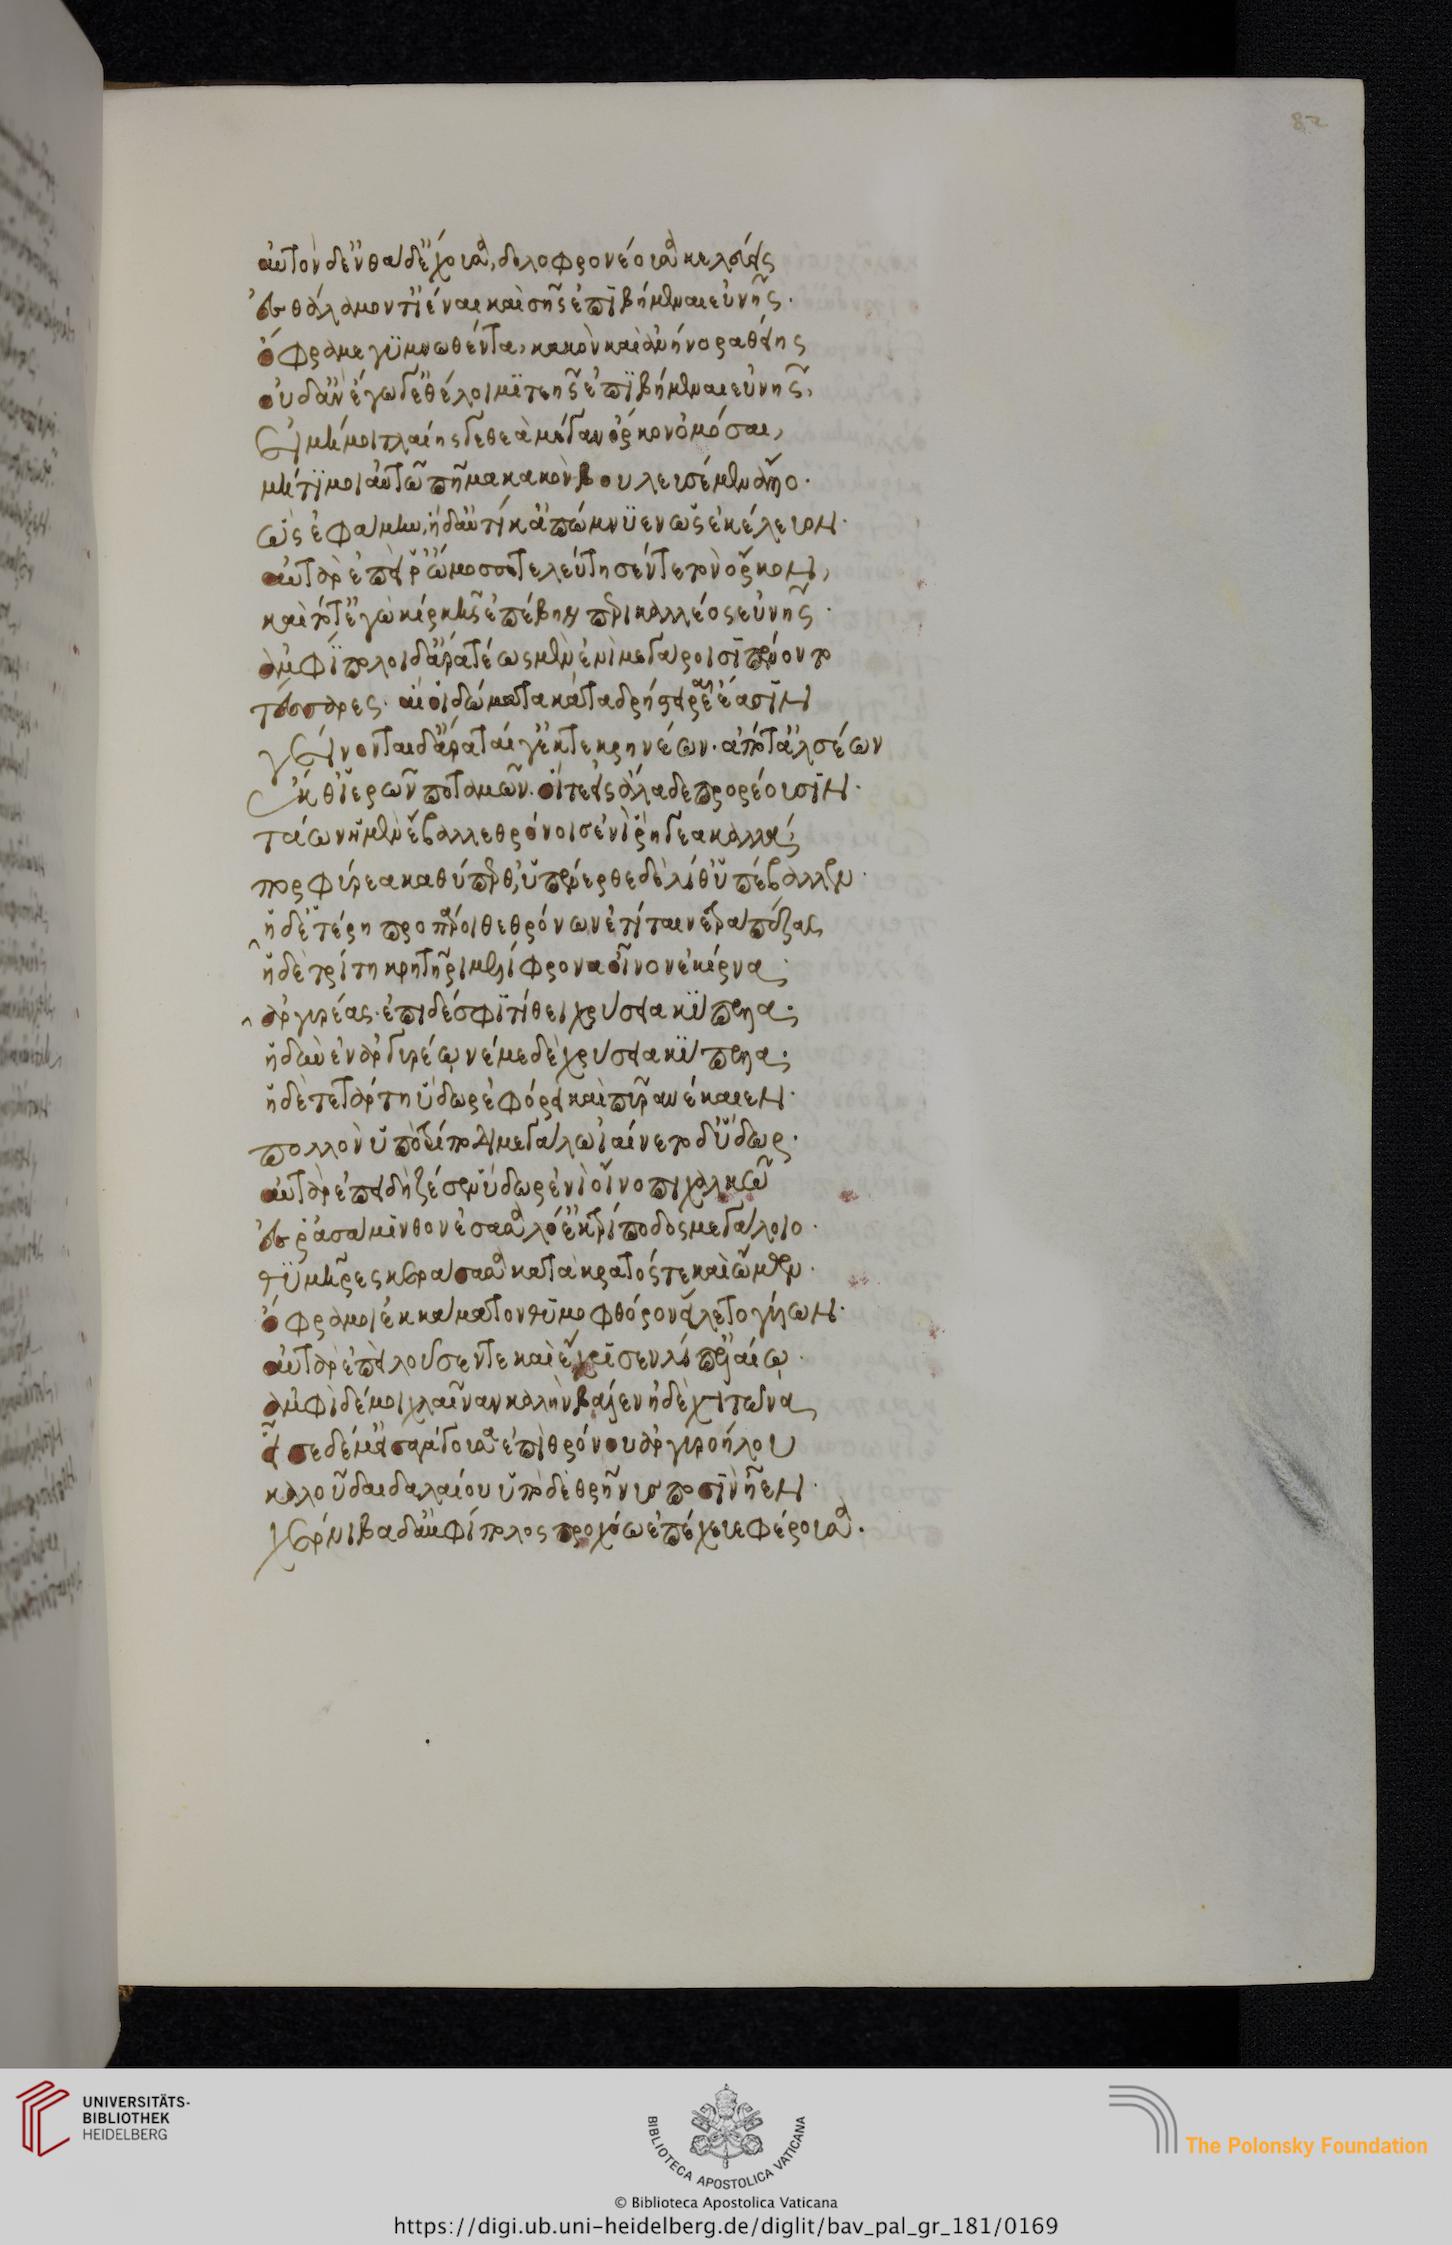 αὐτὸν δ' ἐνθάδ' ἔχουσα, δολοφρονέουσα κελεύεις
ἐς θάλαμον τ' ἰέναι καὶ σῆς ἐπιβήμεναι εὐνῆς.
ὄφρα με γυμνωθέντα, κακὸν καὶ ἀνήνορα θείης
οὐδ' ἂν ἐγώ γ' ἐθέλοιμι τεῆς ἐπιβήμεναι εὐνῆς,
εἰ μή μοι τλαίης γε θεὰ μέγαν ὅρκον ὀμόσαι,
μή τι μοι αὐτῶ πῆμα κακὸν βουλευσέμεν ἄλλο.
ὣς ἐφάμην, ἡ δ' αὐτίκ' ἀπώμνυεν ὡς ἐκέλευον.
αὐτὰρ ἐπεί ῥ' ὤμοσσε τελεύτησέν τε τὸν ὅρκον,
καὶ τότ' ἐγὼ κίρκης ἐπέβην περικαλλέος εὐνῆς.
ἀμφίπολοι δ' ἄρα τέως μὲν ἐνὶ μεγάροισι πένοντο
τέσσαρες. αἵ οἱ δώματα κάτα δρήστειραι ἔασιν
γείνονται δ' ἄρα ταί γ' ἔκ τε κρηνέων. ἀπό τ' ἀλσέων
ἔκ θ' ἱερῶν ποταμῶν. οἵ τ' εἰς ἅλαδε προρέουσιν.
τάων ἡ μὲν ἔβαλλε θρόνοισ' ἐνὶ ῥήγεα καλλά;
πορφύρεα καθύπερθ', ὑπένερθε δὲ λίθ' ὑπέβαλλεν.
ἡ δ' ἑτέρη προπάροιθε θρόνων ἐτίταινε τραπέζας
ἡ δὲ τρίτη κρητῆρι μελίφρονα οἶνον ἐκίρνα
ἀργυρέας. ἐπὶ δέ σφι τίθει χρύσεια κύπελλα.
ἡδὺν ἐν ἀργυρέῳ νέμε δὲ χρύσεια κύπελλα.
ἡ δὲ τετάρτη ὕδωρ ἐφόρει καὶ πῦρ ἀνέκαιεν.
πολλὸν ὑπὸ τρίποδι μεγάλω ἰαίνετο δ' ὕδωρ.
αὐτὰρ ἐπειδὴ ζέσεν ὕδωρ ἐνὶ οἴνοπι χαλκῶ
ἔς ῥ' ἀσάμινθον ἕσασα λό' ἐκ τρίποδος μεγάλοιο.
θυμῆρες κεράσασα κατὰ κρατός τε καὶ ὤμων.
ὄφρα μοι ἐκ κάματον θυμοφθόρον εἵλετο γυίων.
αὐτὰρ ἐπεὶ λοῦσέν τε καὶ ἔχρισεν λίπ' ἐλαίῳ.
ἀμφὶ δέ μοι χλαῖναν καλὴν βάλεν ἠδὲ χιτῶνα
εἷσε δέ μ' εἰσαγάγουσα ἐπὶ θρόνου ἀργυροήλου
καλοῦ δαιδαλαίου ὑπὸ δὲ θρῆνυς ποσὶν ἦεν.
χέρνιβα δ' ἀμφίπολος προχόω ἐπέχευε φέρουσα.
82
UNIVERSITÄTS-
BIBLIOTHEK
HEIDELBERG
BIBLIOTECA APOSTOLICA VATICANA
The Polonsky Foundation
© Biblioteca Apostolica Vaticana
https://digi.ub.uni-heidelberg.de/diglit/bav_pal_gr_181/0169